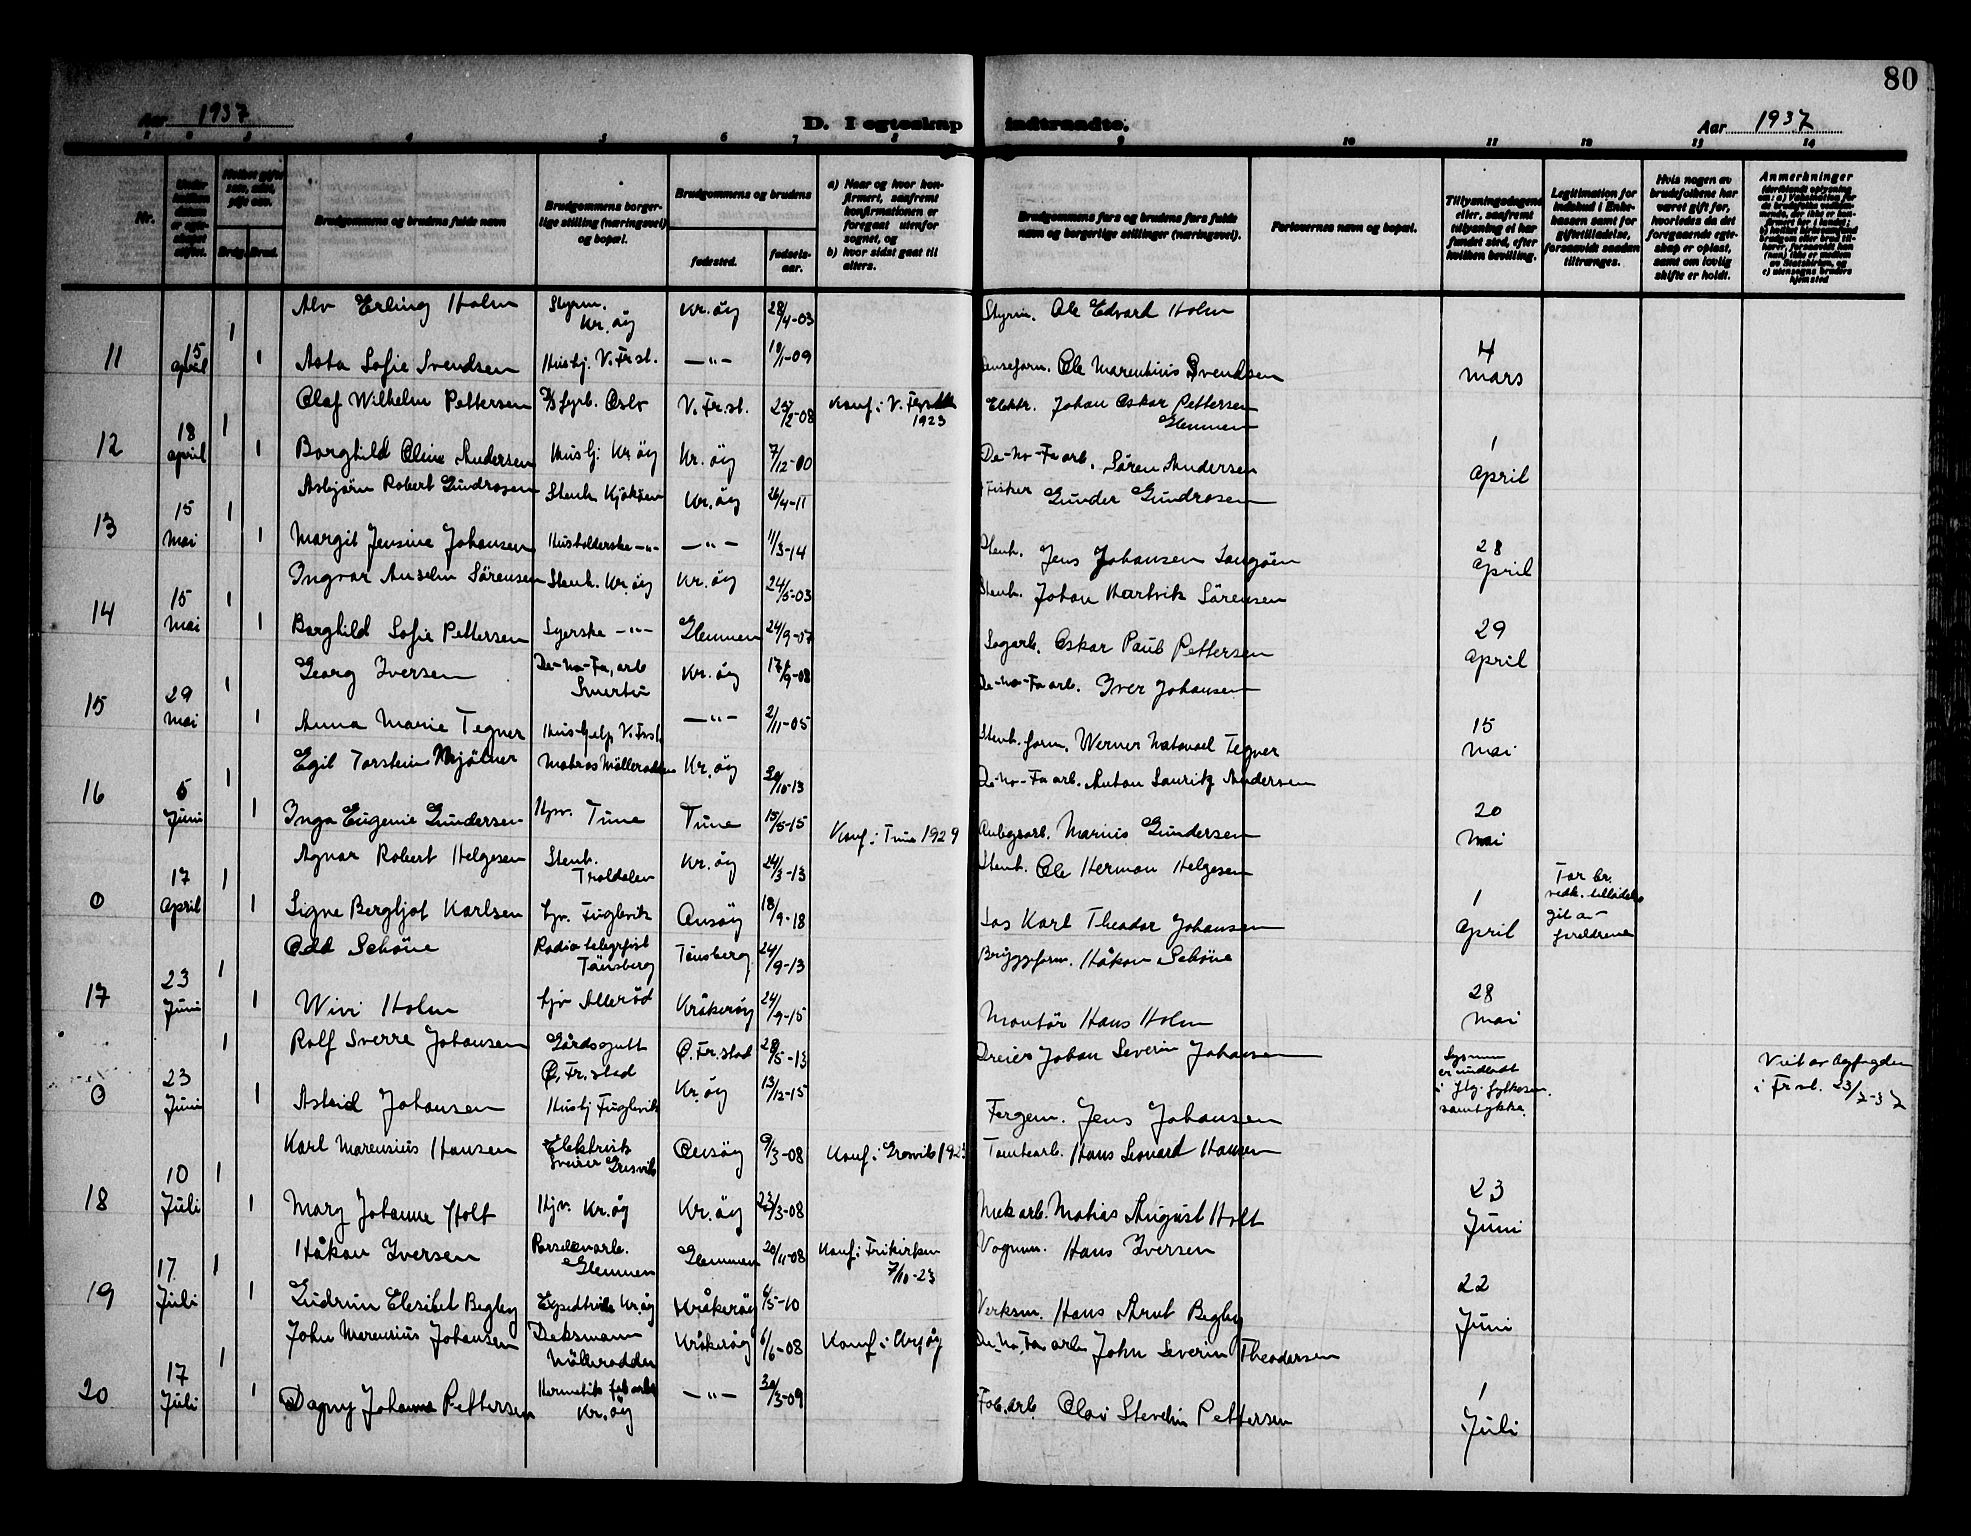 80
Aar 1937
D. I egteskap indtraadte.
Aar 1937
1 2 3 4 5 6 7 8 9 10 11 12 13 14
Nr.
Brudg. Brud.
Brudgommens og brudens fulde navn
Brudgommens borger-
lige stilling (næringsvei)
og bopæl.
Brudgommens og brudens
fødested.
fødsels-
aar.
a) Naar og hvor kon-
firmert, saafremt
konfirmationen er
foregaat utenfor
sognet, og
b) hvor sidst gaat til
alters.
Brudgommens fars og brudens fars fulde
navn og borgerlige stillinger (næringsvei).
Forlovernes navn og bopæl.
Tillysningsdagene
eller, saafremt
tillysning ei har
fundet sted, efter
hvilken bevilling.
Legitimation for
indebud i Enke-
kassen samt for
giftetilladelse,
forsaavidt saadan
tiltrænges.
Hvis nogen av
brudefolkene har
været gift før,
hvorledes da det
foregaaende egte-
skap er opløst,
samt om lovlig
skifte er holdt.
Anmerkninger
Alv Erling Holm Styrm. Kr.øy Kr.øy 28/4-03 Styrm. Ole Edvard Holm
11 15 april 1 1 Asta Sofie Svendsen Hushj. V. Fr.st. —"— 19/1-09 Ole Marentius Svendsen 4 mars
Olaf Wilhelm Pettersen Oslo V. Fr.st. 25/2-08 Konf. i V. 1923 Elektr. Johan Oskar Pettersen Glemmen
12 18 april 1 1 Borghild Oline Andersen Hushj. Kr.øy Kr.øy 7/12-00 De-No-Fa arb. Søren Andersen 1 April
Asbjørn Robert Gundrosen Stenh. Kjøkøen Kr.øy 26/4-11 Fisker Gunder Gundrosen
13 15 Mai 1 1 Margit Jensine Johansen Husholderske —"— —"— 11/3-14 Stenh. Jens Johansen Langøen 28 April
Ingvar Anselm Sørensen Stenh. Kr.øy Kr.øy 24/5-03 Stenh. Johan Hartvik Sørensen
14 15 Mai 1 1 Borghild Sofie Pettersen Syerske —"— Glemmen 24/9-07 Sagarb. Oskar Paul Pettersen 29 April
Georg Iversen De-No-Fa, arb Smertu Kr.øy 17/9-08 De-No-Fa arb. Iver Johansen
15 29 Mai 1 1 Anna Marie Tegner Hushjelp V. Frst. —"— 2/11-05 Stenh. form. Werner Natanael Tegner 15 Mai
Egil Torstein Mjølner Matros Møllerodden Kr.øy 30/10-13 De-No-Fa arb. Anton Lauritz Andersen
16 6 Juni 1 1 Inga Eugenie Gundersen Hjv. Tune Tune 15/5-15 Konf. i Tune 1929 Anlegsarb. Marius Gundersen 20 Mai
Agnar Robert Helgesen Stenh. Troldalen Kr.øy 24/3-13 Stenh. Ole Herman Helgesen
0 17 April 1 1 Signe Bergljot Karlsen hjv. Fuglevik Onsøy 18/9-18 Los Karl Theodor Johansen 1 April
For br. vedk. tilladelse git av foreldrene
Odd Schöne Radiotelegrfist Tønsberg Tønsberg 24/9-13 Bryggeform. Håkon Schöne
17 23 Juni 1 1 Wivi Holm hjv Allerød Kråkerøy 24/9-15 Montør Hans Holm 28 Mai
Rolf Sverre Johansen Gårdsgutt Ø. Fr.stad Ø. Fr.stad 28/5-13 Dreier Johan Severin Johansen
0 23 Juni 1 1 Astrid Johansen Hushj Fuglevik Kr.øy 13/12-15 Fergem. Jens Johansen
Lysnin er undladt i flg. fylkesm. samtykke.
Viet av byfogden i Fr.st. 23/7-37
Karl Marensius Hansen Elektrisk sveiser Gresvik Onsøy 9/3-08 Konf. i Gresvik 192 Tomtearb. Hans Leonard Hansen
18 10 Juli 1 1 Mary Johanne Holt Hjv. Kr.øy Kr.øy 23/3-08 Mek arb. Matias August Holt 23 Juni
Håkon Iversen Porselenarb. Glemmen Glemmen 20/11-08 Konf. i Frikirken 7/10-23 Vognm. Hans Iversen
19 17 Juli 1 1 Gudrun Elesibet Begby Expeditrise Kr.øy Kråkerøy 6/5-10 Verksm. Hans Arnt Begby 22 Juni
John Marensius Johansen Deksmann Møllerodden Kråkerøy 6/6-08 Konf. i Kr.øy De-No-Fa arb John Severin Theodorsen
20 17 Juli 1 1 Dagny Johanne Pettersen Hermetik fab.arb. Kr.øy —"— 30/3-09 Fab. arb. Olai Pettersen 1 Juli